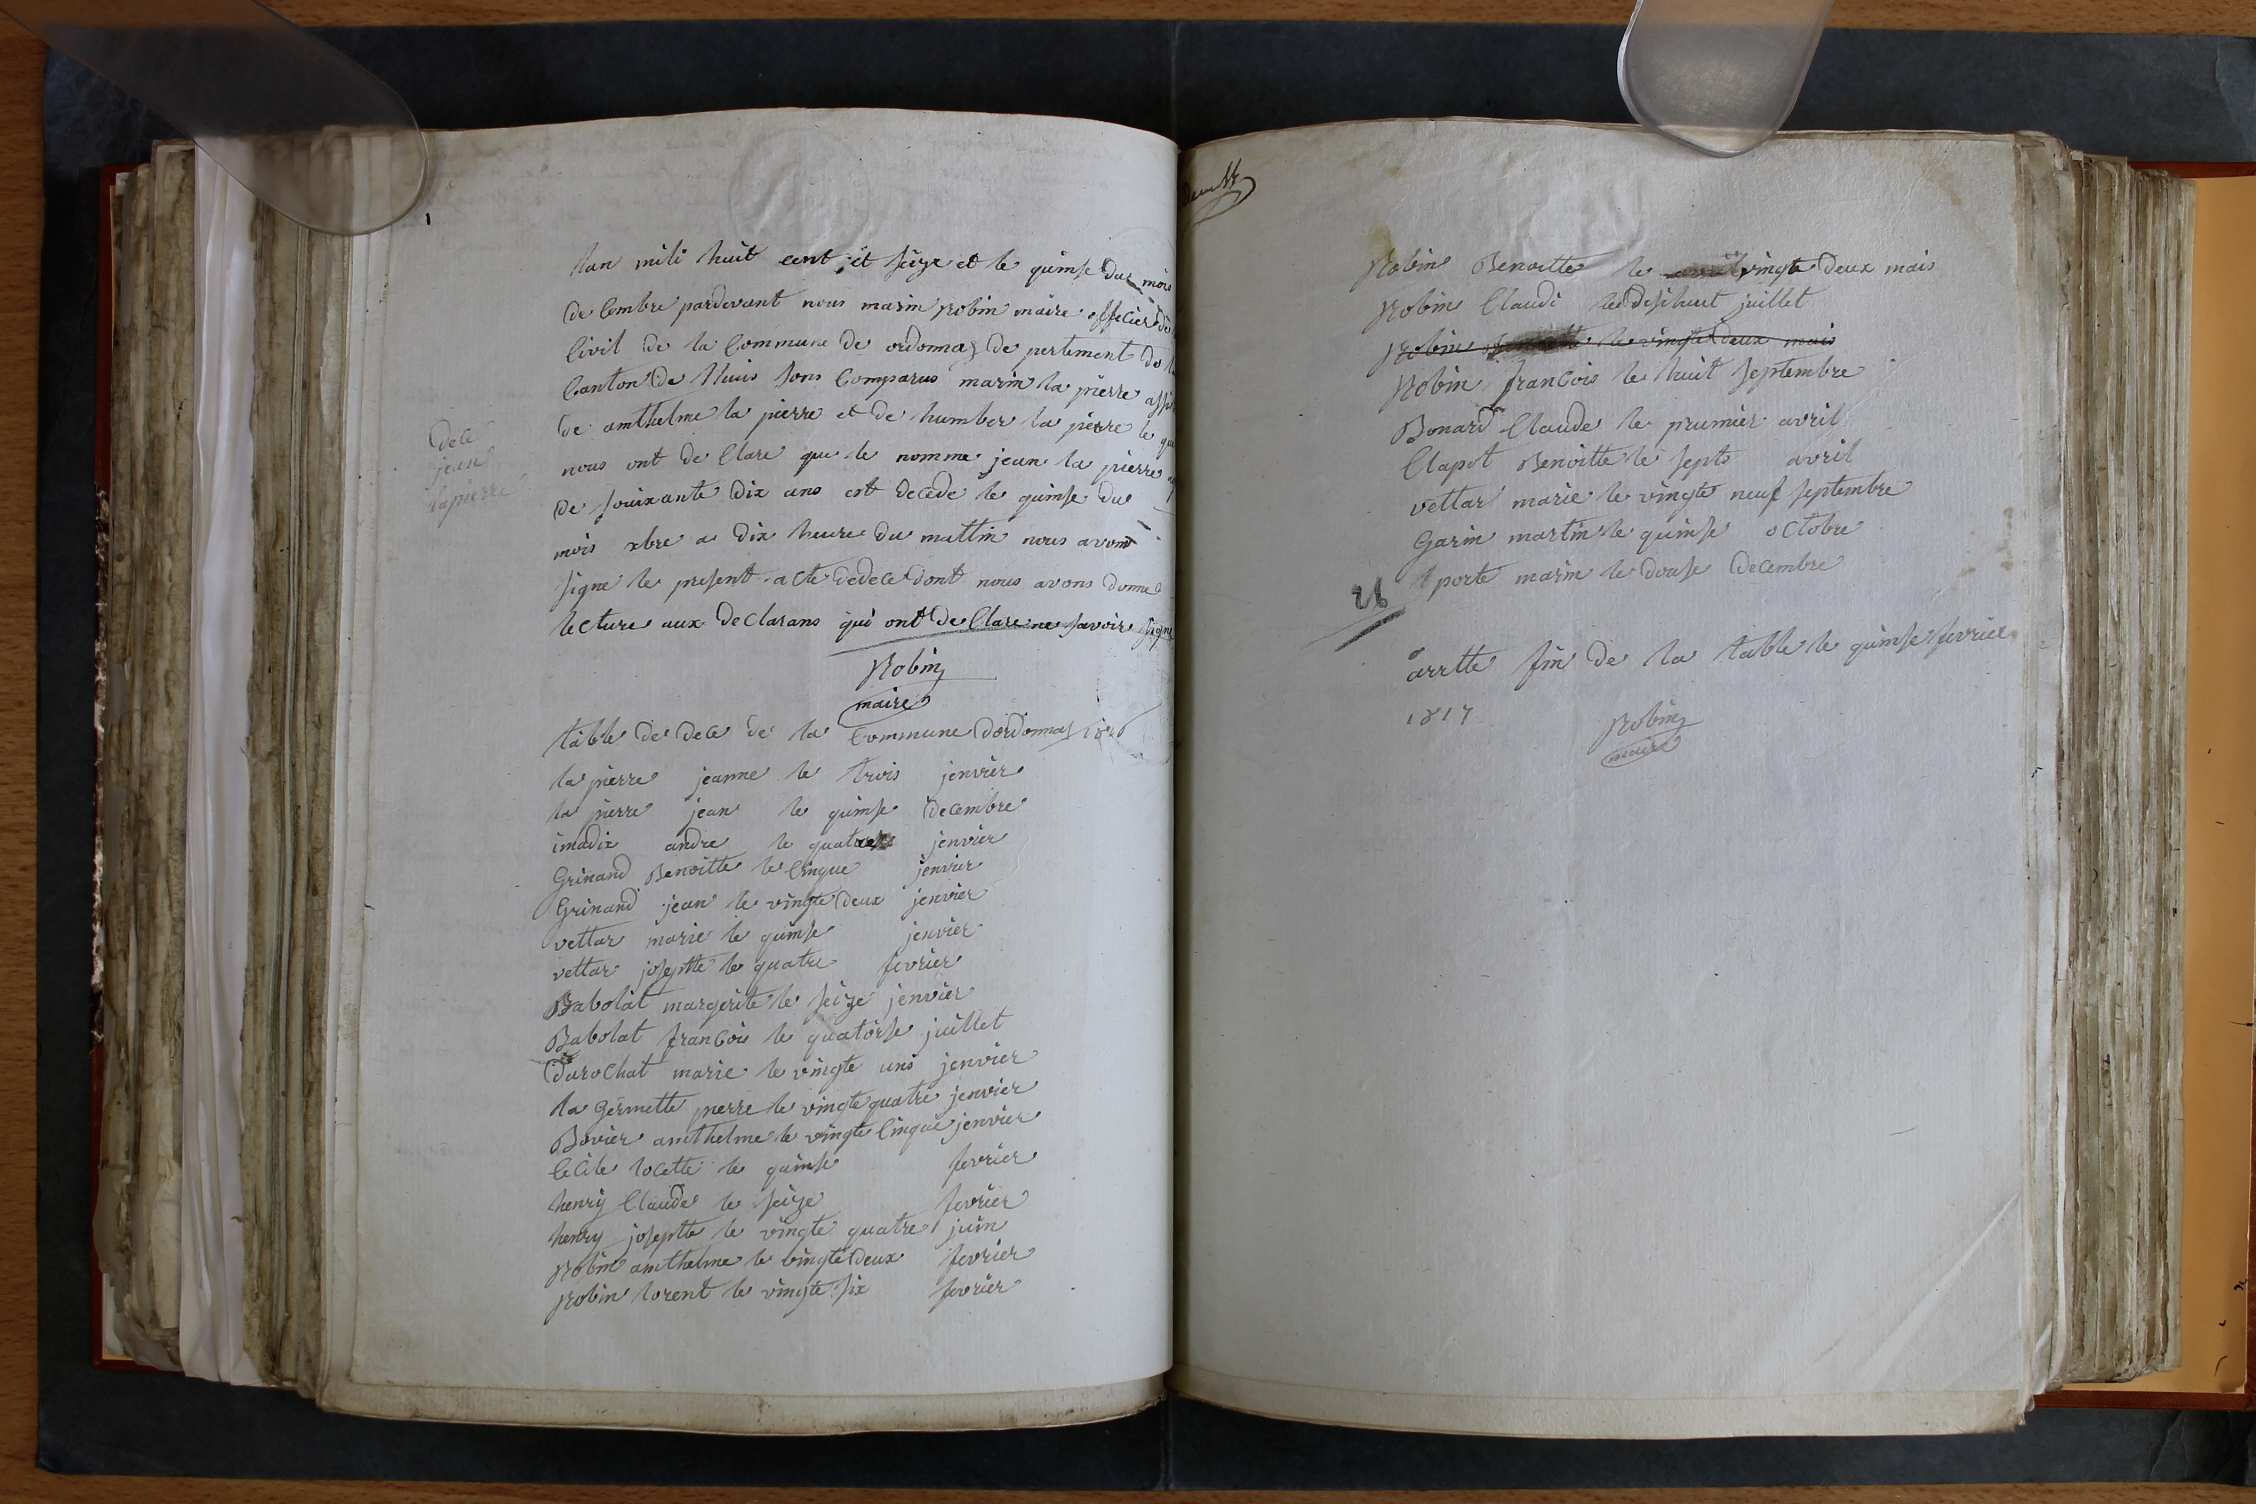 dece
jean
lapierre
lan mile huit cent et seize et le quinse du mois
de Cembre pardevant nous marin Robin maire officier de
Civil de la Commune de ordonnaz de pertement de
Canton de lhuis sons Comparus marin la pierre
de amthelme la pierre et de humber la pierre le
nous ont de Clare que le nomme jean la pierre
de souixante dix ans est decede le quinse du
mois xbre a dix heure du mattin nous avons
signe le present acte dedece dont nous avons donne
lecture aux declarans qui ont de Clare ne savoir signe
Robin
maire
table de dece de la Commune dordonnaz 1816
la pierre jeanne le trois jenvier
la pierre jean le quinse decembre
imadix andre le quatre jenvier
Grinand Benoitte le Cinque jenvier
Grinand jean le vingte deux jenvier
vettar marie le quinse jenvier
vettar josephte le quatre fevrier
Babolat margerite le seize jenvier
Babolat franCois le quatorse juillet
durochat marie le vingte uns jenvier
la germette pierre le vingte quatre jenvier
Bovier amthelme le vingte Cinque jenvier
CeCile locette le quinse fevrier
henry Claude le seize fevrier
henry josephte le vingte quatre juin
Robin amthelme le vingte deux fevrier
Robin lorent le vingte six fevrier
Robin Benoitte le vingte deux mais
Robin Claude le disihuit juillet
Robin le vingte deux mais
Robin franCois le huit septembre
Bonard Claude le prumier avril
Clapot Benoitte le septs avril
vettar marie le vingte neuf septembre
Garin martin le quinse octobre
porte marin le douse decembre
26
arrtte fin de la table le quinse fevrier
1817
Robin
maire